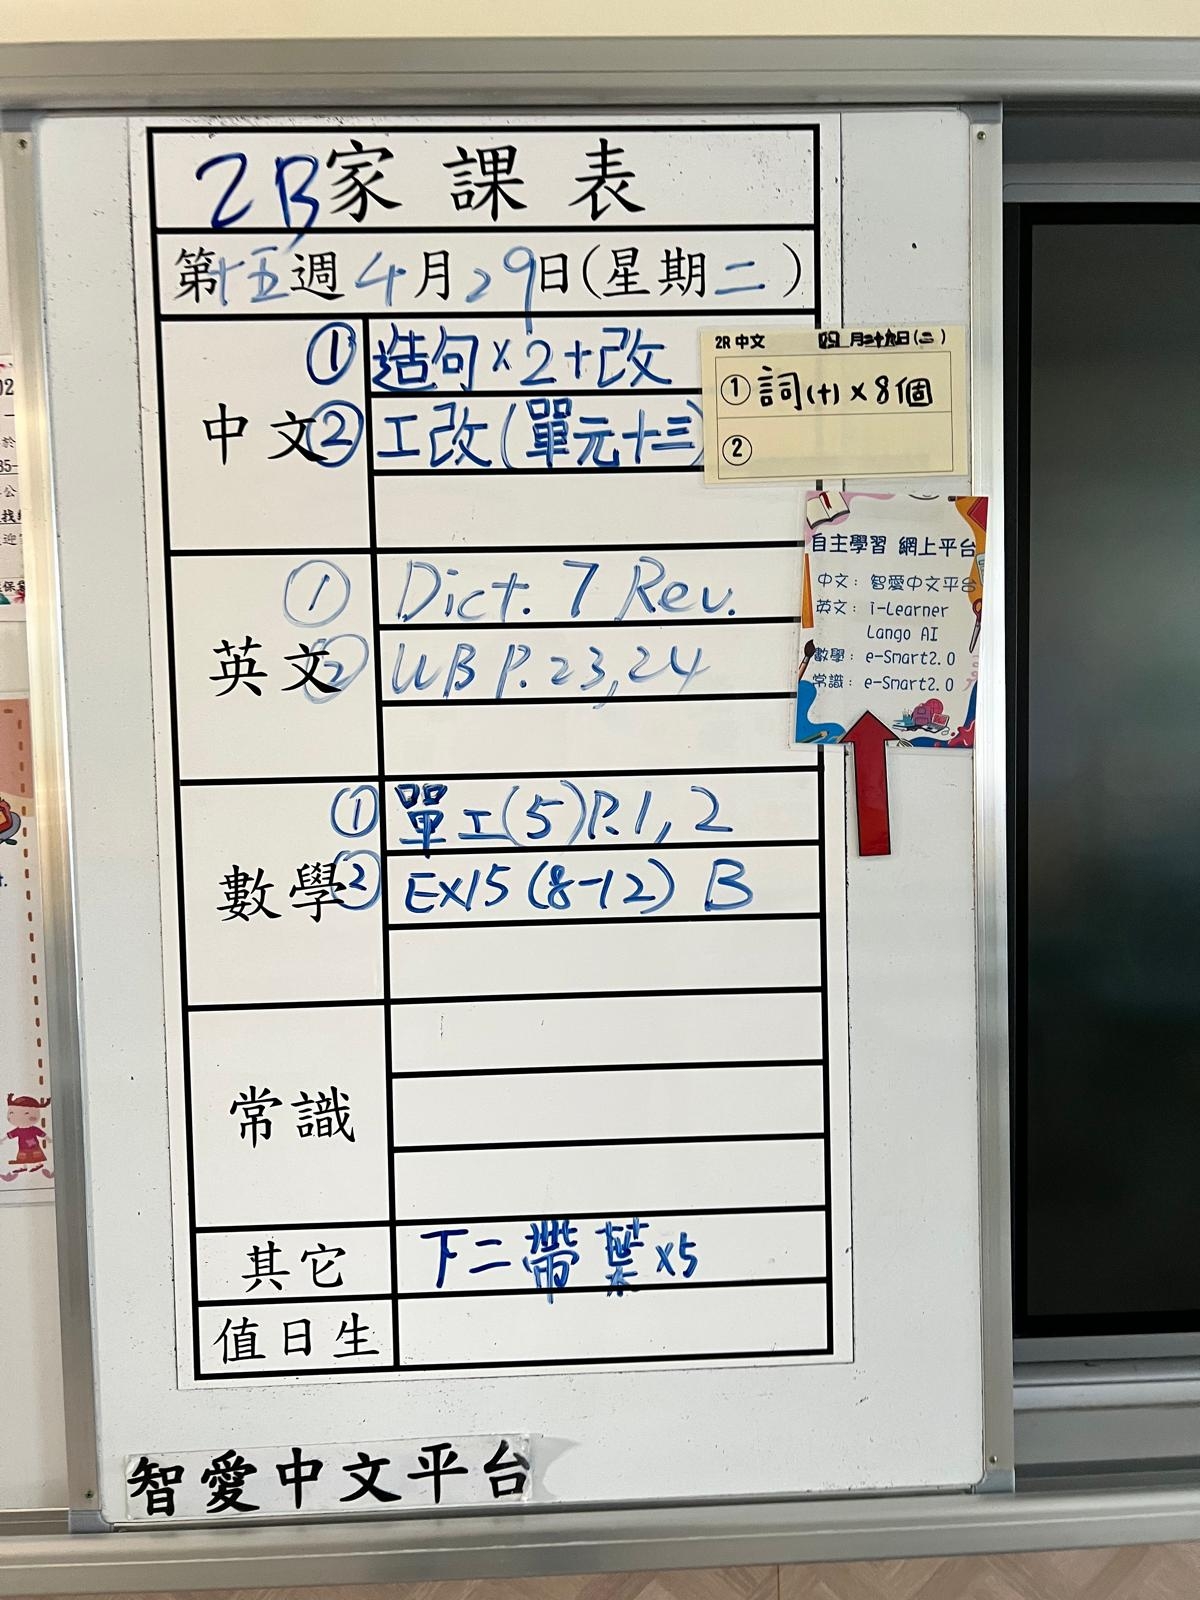 2B家課表
第十五週4月29日(星期二)
中文
① 造句×2+改
② 工改(單元十三)
2R 中文 四月二十九日(二)
① 詞(十)×8個
②
自主學習 網上平台
中文：智愛中文平台
英文：i-Learner
Lango AI
數學：e-Smart2.0
常識：e-Smart2.0
英文
① Dict. 7 Rev.
② WB P.23,24
數學
① 單工(5)P.1,2
② Ex15 (8-12) B
常識
其它 下二帶葉×5
值日生
智愛中文平台